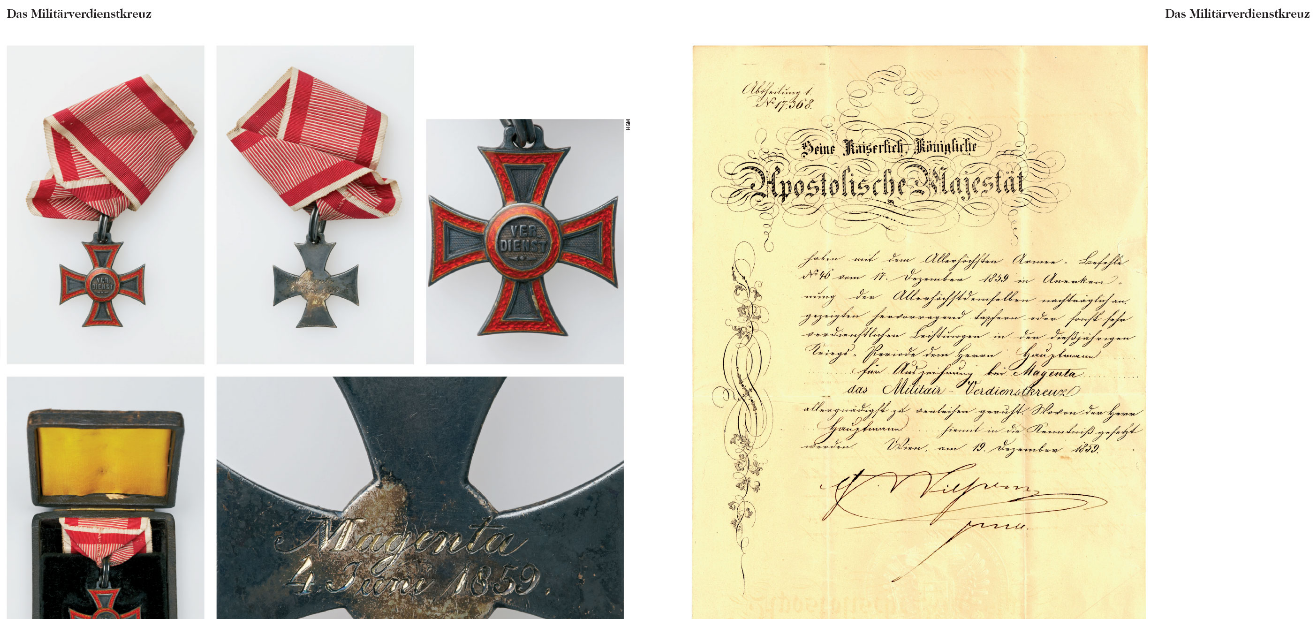 Das Militärverdienstkreuz
Das Militärverdienstkreuz
VER
DIENST
VER
DIENST
HGM
Magenta
4 Juni 1859.
Abtheilung 1.
No 17,368.
Seine Kaiserlich, Königliche
Apostolische Majestät
haben mit dem Allerhöchsten Armee-Befehle
No 46 vom 17. Dezember 1859 in Anerken-
nung der Allerhöchstdemselben nachträglich an-
gezeigten hervorragend tapfern oder sonst sehr
verdienstlichen Leistungen in der dießjährigen
Kriegs-Periode dem Herrn Hauptmann
für Auszeichnung bei Magenta
das Militair-Verdienstkreuz
allergnädigst zu verleihen geruht. Wovon der Herr
Hauptmann hiemit in die Kenntniß gesetzt
werden Wien, am 19. Dezember 1859.
Wilhelm